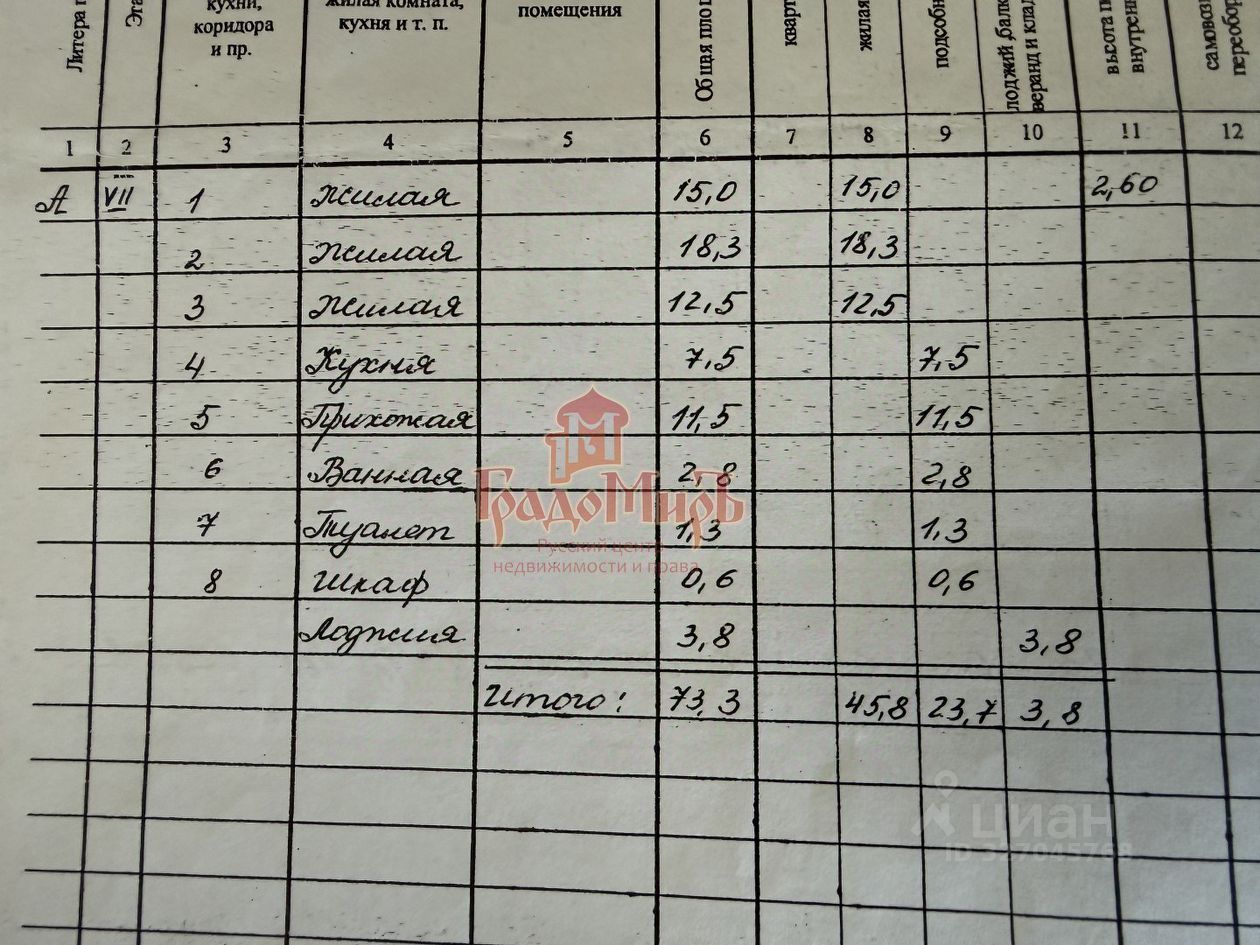 Литера п Эта кухни, коридора и пр. жилая комната, кухня и т. п. помещения Общая площ кварт жилая подсобн лоджий, балк веранд и клад высота п внутрен самовоз переобор
1 2 3 4 5 6 7 8 9 10 11 12
А VII 1 Жилая 15,0 15,0 2,60
2 Жилая 18,3 18,3
3 Жилая 12,5 12,5
4 Кухня 7,5 7,5
5 Прихожая 11,5 11,5
6 Ванная 2,8 2,8
7 Туалет 1,3 1,3
8 Шкаф 0,6 0,6
Лоджия 3,8 3,8
Итого: 73,3 45,8 23,7 3,8
ГрадоМиръ
Русский центр
недвижимости и права
циан